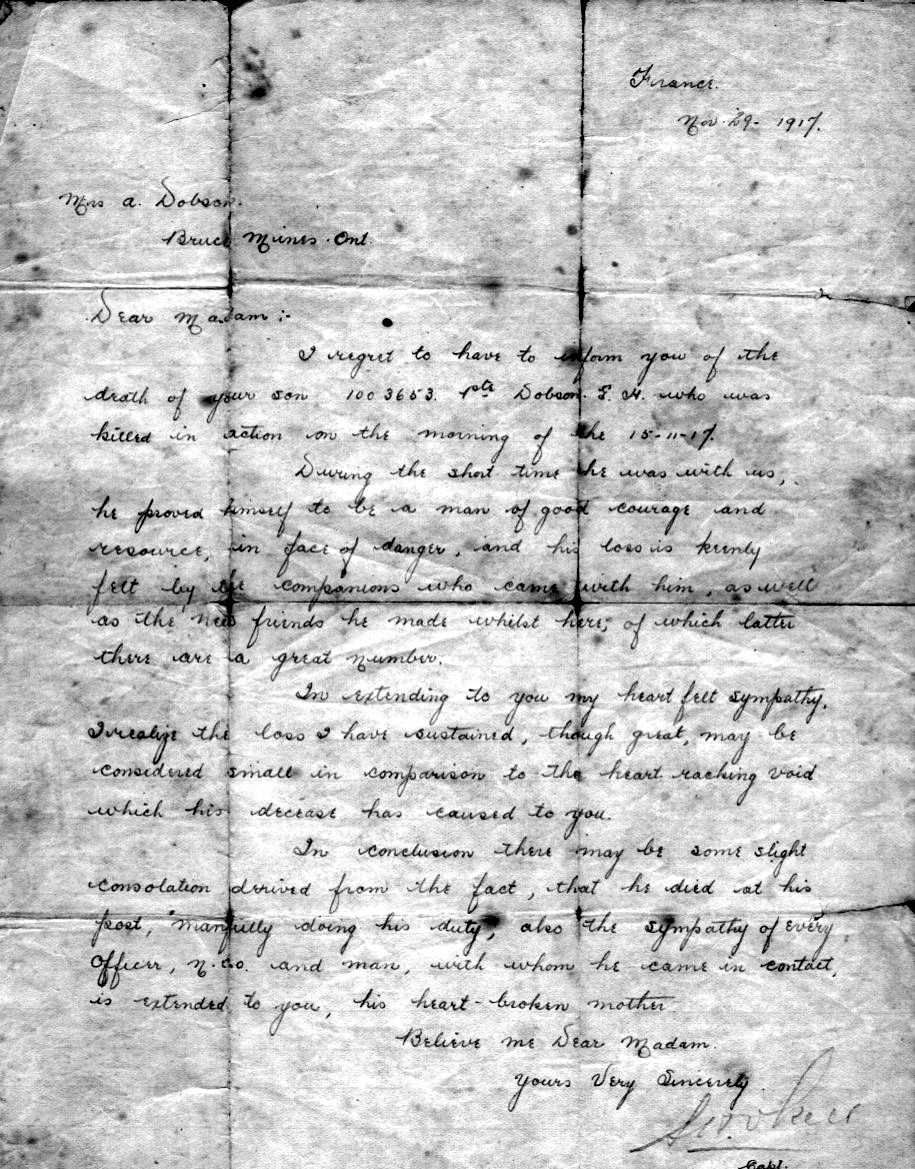 France.
Nov. 29 - 1917.
Mrs A. Dobson.
Bruce Mines. Ont.
Dear Madam :-
I regret to have to inform you of the
death of your son 1003653. Pte Dobson. E. H. who was
killed in action on the morning of the 15-11-17.
During the short time he was with us,
he proved himself to be a man of good courage and
resource, in face of danger, and his loss is keenly
felt by the companions who came with him, as well
as the new friends he made whilst here; of which latter
there are a great number.
In extending to you my heart felt sympathy.
I realize the loss I have sustained, though great, may be
considered small in comparison to the heart racking void
which his decease has caused to you.
In conclusion there may be some slight
consolation derived from the fact, that he died at his
post, manfully doing his duty, also the sympathy of every
Officer, N.Co. and man, with whom he came in contact,
is extended to you, his heart-broken mother.
Believe me Dear Madam.
Yours Very Sincerely.
Capt.